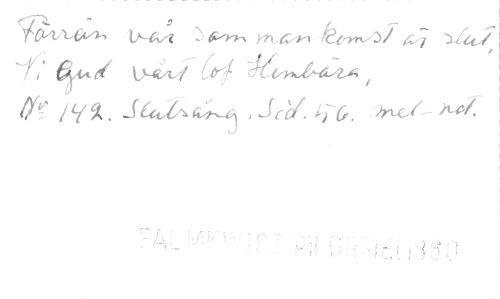 Förrän vår sammankomst är slut,
Vi Gud vårt lof Hembära,
No 142. Slutsång. Sid. 56. mel-not.
PALMKWIST